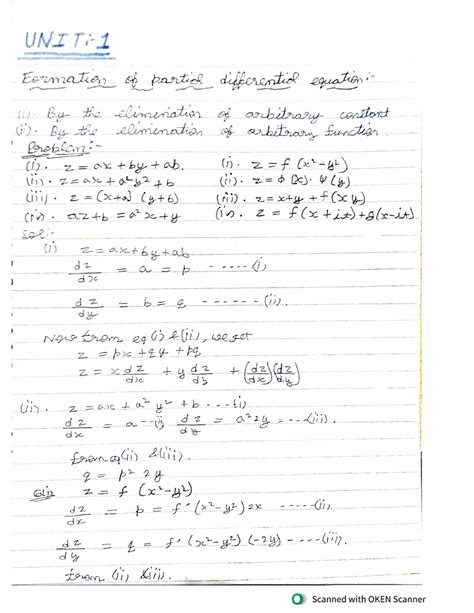 UNIT:-1
Formation of partial differential equation:-
(i). By the elimenation of arbitrary constant
(ii). By the elimenation of arbitrary function
Problem:-
(i). z = ax + by + ab. (i). z = f (x² - y²)
(ii). z = ax + a²y² + b (ii). z = φ (x). ψ (y)
(iii). z = (x+a) (y+b) (iii). z = x+y + f(xy)
(iv). az + b = a²x + y (iv). z = f(x + it) + g(x - it)
Sol:-
(i) z = ax + by + ab
dz/dx = a = p -----(i)
dz/dy = b = q ------(ii).
Now from eq (i) & (ii), we get
z = px + qy + pq
z = x dz/dx + y dz/dy + (dz/dx)(dz/dy)
(ii). z = ax + a² y² + b ...(i)
dz/dx = a --(ii) dz/dy = a² 2y ---(iii).
from eq (ii) & (iii).
q = p² 2y
z = f (x² - y²)
dz/dx = p = f' (x² - y²) 2x -----(ii)
dz/dy = q = f' (x² - y²) (-2y) ----(iii).
from (ii) & (iii).
Scanned with OKEN Scanner